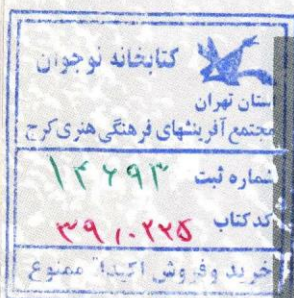 کتابخانه نوجوان
استان تهران
مجتمع آفرینشهای فرهنگی هنری کرج
شماره ثبت ۱۴۶۹۳
کد کتاب ۳۹۱۰۲۲۵
خرید و فروش اکیداً ممنوع